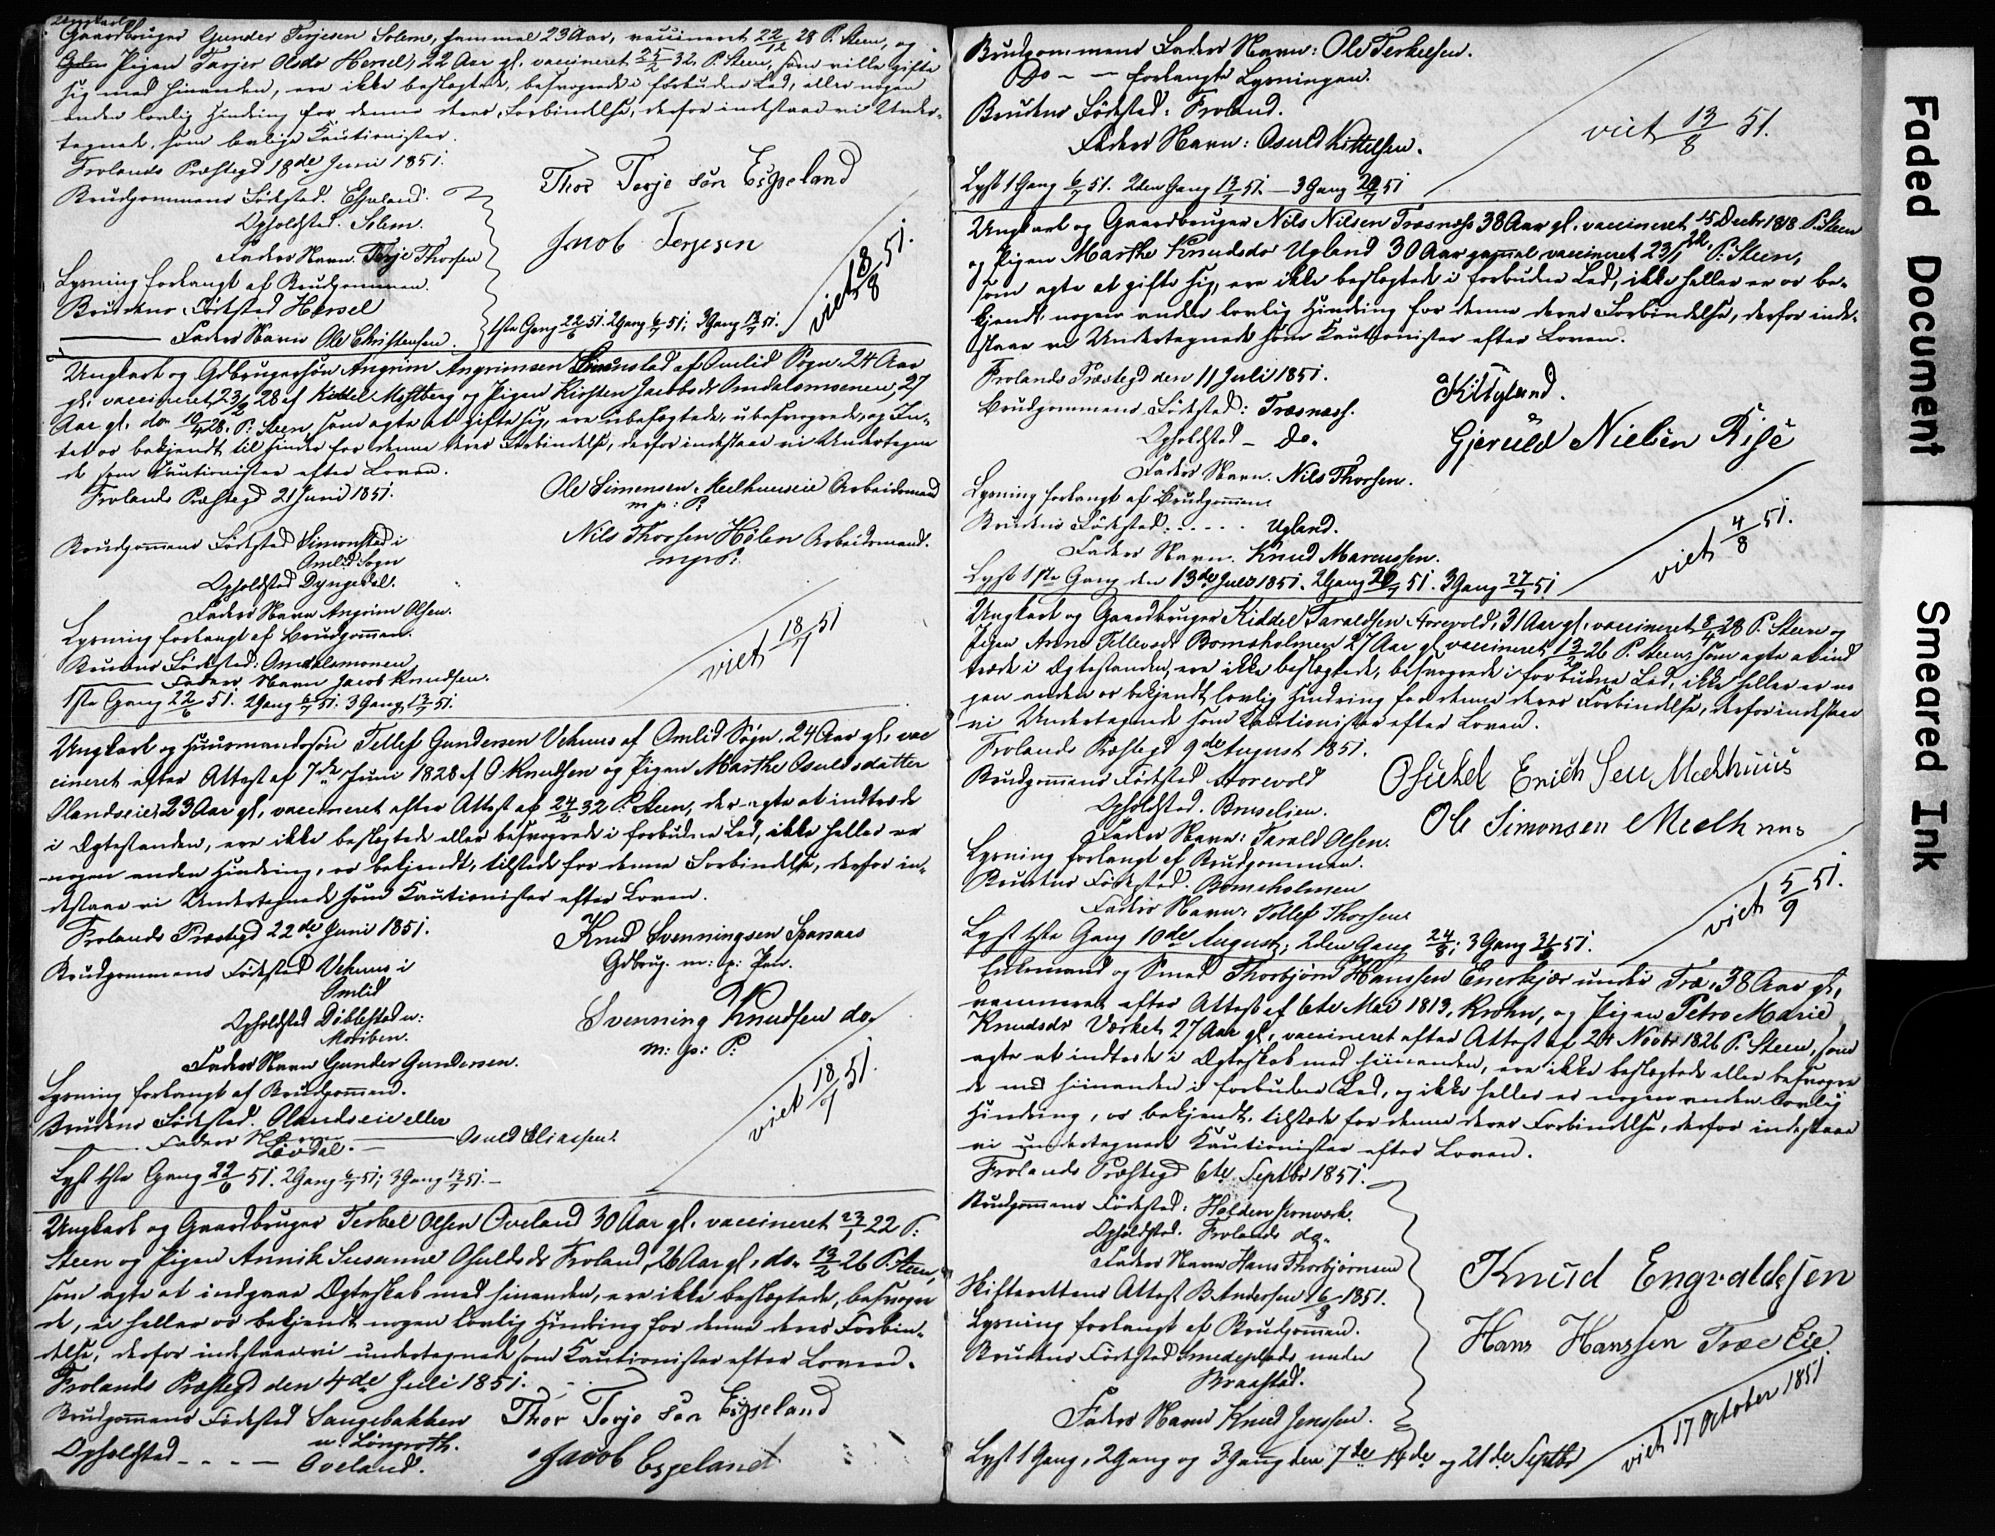 Ungkarl
Gaardbruger Gunder Terjesen Solem, gammel 23 Aar, vaccineret 22/12 28 P. Steen, og
Pigen Tarjer Olsdr Hersel, 22 Aar gl. vaccineret 25/2 32 P. Steen, som ville gifte
sig med hinanden, ere ikke beslægtede, besvogrede i forbudne Led, eller nogen
anden lovlig Hindring for denne deres Forbindelse, derfor indestaae vi Under-
tegnede som lovlige Kautionister.
Frolands Præstegd 18de Juni 1851.
Brudgommens Fødested. Espeland.
Opholdsted. Solem.
Faders Navn. Terje Thorsen
Lysning forlangt af Brudgommen.
Brudens Fødested Hersel
Faders Navn Ole Christensen.
Thor Terje sön Espeland
Jacob Terjesen
1ste Gang 22/6 51. 2 Gang 6/7 51; 3 Gang 13/7 51.
viet 8/8 51.
Ungkarl og Gdbrugersøn Angrim Angrimsen Simonstad af Omlid Sogn, 24 Aar
gl. vaccineret 23/12 28 af Kittel Mostberg og Pigen Kirsten Jacobsdr Omdalsmonen, 27
Aar gl. do 10/4 28. P: Steen, som agte at gifte sig, ere ubeslægtede, ubesvogrede, og In-
tet os bekjendt til Hinder for denne deres Forbindelse, derfor indestaae vi Undertegne
de som Kautionister efter Loven.
Frolands Præstegd 21 Juni 1851.
Ole Simensen Meelhuuseie Arbeidsmand
m. p: P:
Nils Thorsen Hølen Arbeidsmand.
m p P.
Brudgommens Fødested Simonstad i
Omlid Sogn
Opholdsted Dyngedal.
Faders Navn Angrim Olsen.
Lysning forlangt af Brudgommen.
Brudens Fødested. Omdalsmonen
Faders Navn Jacob Knudsen.
1ste Gang 22/6 51. 2 Gang 6/7 51. 3 Gang 13/7 51.
viet 18/7 51
Ungkarl og Huusmandssøn Tellef Gundersen Vehuus af Omlid Sogn, 24 Aar gl. vac
cineret efter Attest af 7de Juni 1828 af O Knudsen og Pigen Marthe Osuldsdatter
Olandseie 23 Aar gl., vaccineret efter Attest af 24/2 32 P. Steen, der agte at indtræde
i Ægtestanden, ere ikke beslægtede eller besvogrede i forbudne Led, ikke heller er
nogen anden Hindring, os bekjendt, tilstede for denne Forbindelse, derfor in-
destaae vi Undertegnede som Kautionister efter Loven.
Frolands Præstegd 22de Juni 1851.
Knud Svenningsen Sparsaas
Gdbrug. m: p: Pen.
Svenning Knudsen do.
m: p: P:
Brudgommens Fødested Vehuus i
Omlid
Opholdsted Døblestad u:
Moriben.
Faders Navn Gunder Gundersen.
Lysning forlangt af Brudgommen.
Brudens Fødested. Olandseie eller
Løvdal.
Faders Navn Osuld Eliassen.
Lyst 1ste Gang 22/6 51. 2 Gang 6/7 51; 3 Gang 13/7 51.
viet 18/7 51.
Ungkarl og Gaardbruger Terkel Olsen Oveland 30 Aar gl. vaccineret 23/1 22 P:
Steen og Pigen Annik Susanne Osuldsdr Froland, 26 Aar gl. do. 13/2 26 P. Steen,
som agte at indgaae Ægteskab med hinanden, ere ikke beslægtede, besvogre
de, ei heller os bekjendt nogen lovlig Hindring for denne deres Forbin-
delse, derfor indestaae vi undertegnede som Kautionister efter Loven.
Frolands Præstegd den 4de Juli 1851.
Thor Terje sön Espeland
Jacob Espeland
Brudgommens Fødested Saugebakken
u. Lønproth.
Opholdsted - - - - Oveland.
Brudgommens Faders Navn: Ole Terkelsen.
Do - - forlangte Lysningen.
Brudens Fødested: Froland.
Faders Navn: Osuld Kittelsen.
Lyst 1 Gang 6/7 51. 2den Gang 13/7 51. - 3 Gang 20/7 51
viet 13/8 51.
Ungkarl og Gaardbruger Nils Nilsen Træsnæss 38 Aar gl. vaccineret 15 Decbr 1818. P. Steen
og Pigen Marthe Knudsdr Ugland 30 Aar gammel vaccineret 23/1 22. P: Steen,
som agte at gifte sig, ere ikke beslægtede i forbudne Led, ikke heller er os be-
kjendt nogen anden lovlig Hindring for denne deres Forbindelse, derfor inde-
staae vi Undertegnede som Kautionister efter Loven.
Frolands Præstegd den 11 Juli 1851.
K: Ugland.
Gjeruld Nielsen Rise
Brudgommens Fødested: Træsnæss.
Opholdsted - do.
Faders Navn. Nils Thorsen.
Lysning forlangt af Brudgommen.
Brudens Fødested. . . . . . Ugland.
Faders Navn. Knud Marcussen.
Lyst 1ste Gang den 13de Juli 1851. 2 Gang 20/7 51. 3 Gang 27/7 51
viet 4/8 51.
Ungkarl og Gaardbruger Kiddel Taraldsen Storevold, 31 Aar gl. vaccineret 8/4 28 P. Steen og
Pigen Anne Tellevsdr Bomsholmen 27 Aar gl vaccineret 13/2 26 P. Steen, som agte at ind
træde i Ægtestanden, ere ikke beslægtede, besvogrede i forbudne Led, ikke heller er no
gen anden os bekjendt lovlig Hindring for denne deres Forbindelse, derfor indestaae
vi Undertegnede som Kautionister efter Loven.
Frolands Præstegd 9de August 1851.
Brudgommens Fødested Storevold
Opholdsted. Bruselien.
Faders Navn: Tarald Olsen.
Osuld Erich Sen Meelhuus
Ole Simonsen Meelhuus
Lysning forlangt af Brudgommen.
Brudens Fødested. Bomsholmen
Faders Navn: Tellef Thorsen.
Lyst 1ste Gang 10de August; 2den Gang 24/8; 3 Gang 31/8 51.
viet 5/9 51.
Enkemand og Smed Thorbjørn Hanssen Enerkjær under Træ, 38 Aar gl.,
vaccineret efter Attest af 6te Mai 1813, Krohn, og Pigen Petro Marie
Knudsdr Værket, 27 Aar gl., vaccineret efter Attest af 24 Novbr 1826 P. Steen, som
agte at indtræde i Ægteskab med hinanden, ere ikke beslægtede eller besvogre
de med hinanden i forbudne Led, og ikke heller er nogen anden lovlig
Hindring, os bekjendt, tilstede for denne deres Forbindelse, derfor indestaae
vi undertegnede Kautionister efter Loven.
Frolands Præstegd 6te Septbr 1851.
Brudgommens Fødested: Holden Jernværk.
Opholdsted. Frolands do.
Faders Navn Hans Thorbjørnsen
Skifterettens Attest B Andersen 16/9 1851.
Lysning forlangt af Brudgommen.
Brudens Fødested Smedeplads under
Braastad.
Faders Navn Knud Jenssen.
Knud Engvaldsen
Hans Hanssen Træe Eie
Lyst 1 Gang, 2 Gang og 3 Gang den 7de 14de og 21de Septbr
viet 17 October 1851
Faded Document
Smeared Ink